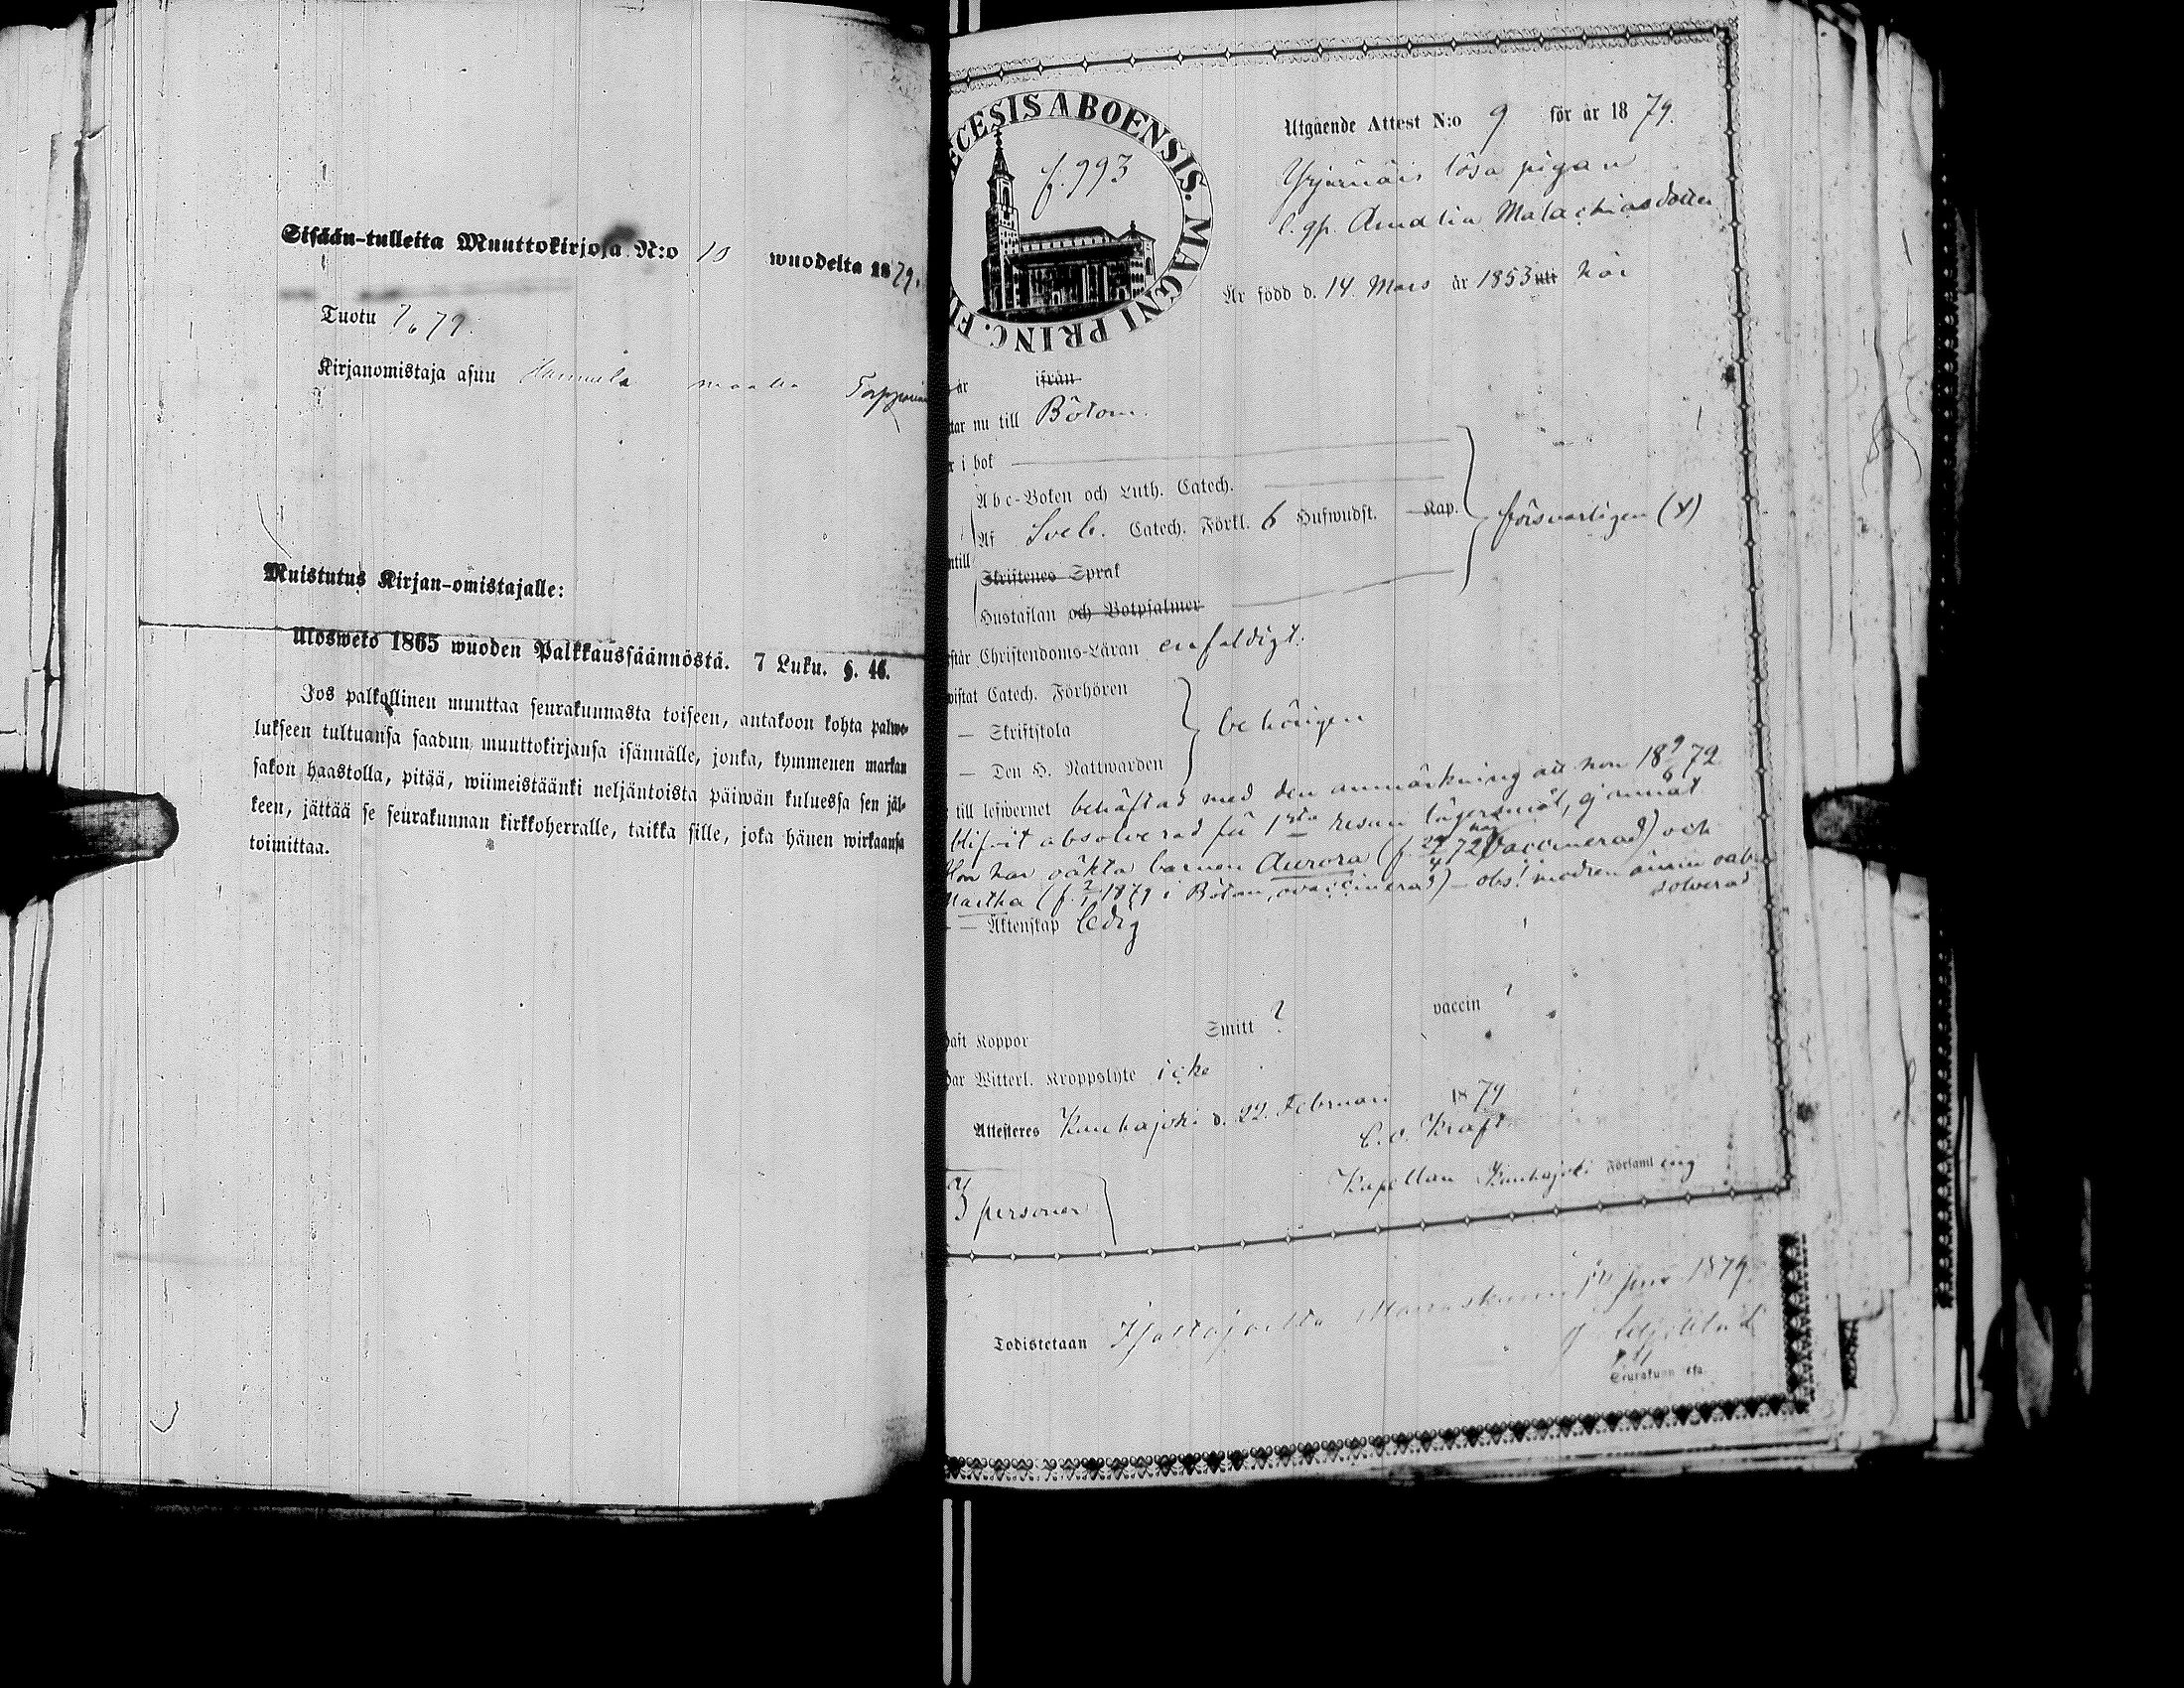 Sisään-tulleita Muuttokirjoja N:o 10 wuodelta 1879.
Tuotu 7/6 79.
Kirjanomistaja asuu Hannula maalla
Muistutus Kirjan-omistajalle:
Ulosweto 1865 wuoden Palkkaussäännöstä. 7 Luku. §. 46.
Jos palkollinen muuttaa seurakunnasta toiseen, antakoon kohta palwe-
lukseen tultuansa saadun muuttokirjansa isännälle, jonka, kymmenen markan
sakon haastolla, pitää, wiimeistäänki neljäntoista päiwän kuluessa sen jäl-
keen, jättää se seurakunnan kirkkoherralle, taikka sille, joka hänen wirkaansa
toimittaa.
ECESIS ABOENSIS. MAGNI PRINC. FI
f. 993
Utgående Attest N:o 9 för år 1879.
lösa pigan
Amalia Malachiasdotter
Är född d. 14 Mars år 1853 utt här
år ifrån
tar nu till Bötom.
r i bok
Abc-Boken och Luth. Catech.
Af Sveb. Catech. Förkl. 6 Hufwudst. Kap. försvarligen (x)
ntill
Skriftenes Språk
Hustaflan och Botpsalmer
står Christendoms-Läran enfaldigt.
wistat Catech. Förhören
— Skriftskola behörigen
— Den H. Nattwarden
till lefwernet behäftad med den anmärkning att hon 18 9/6 72
blifvit absolverad för 1sta resan lägersmål, ej annat
Hon har oäkta barnen Aurora (f. 29/4 72 har vaccinerad) och
Martha (f. 2/1 1879 i Bötom, ovaccinerad) — obs! modren ännu oab-
solverad
— Äktenskap ledig
haft Koppor Smitt ? vaccin ?
har Witterl. Kroppslyte icke
Attesteres Kauhajoki d. 22. Februari 1879
C. O. Kraft
Kapellan Kauhajoki Församling
3 personer
Todistetaan 1879
Seurakunn